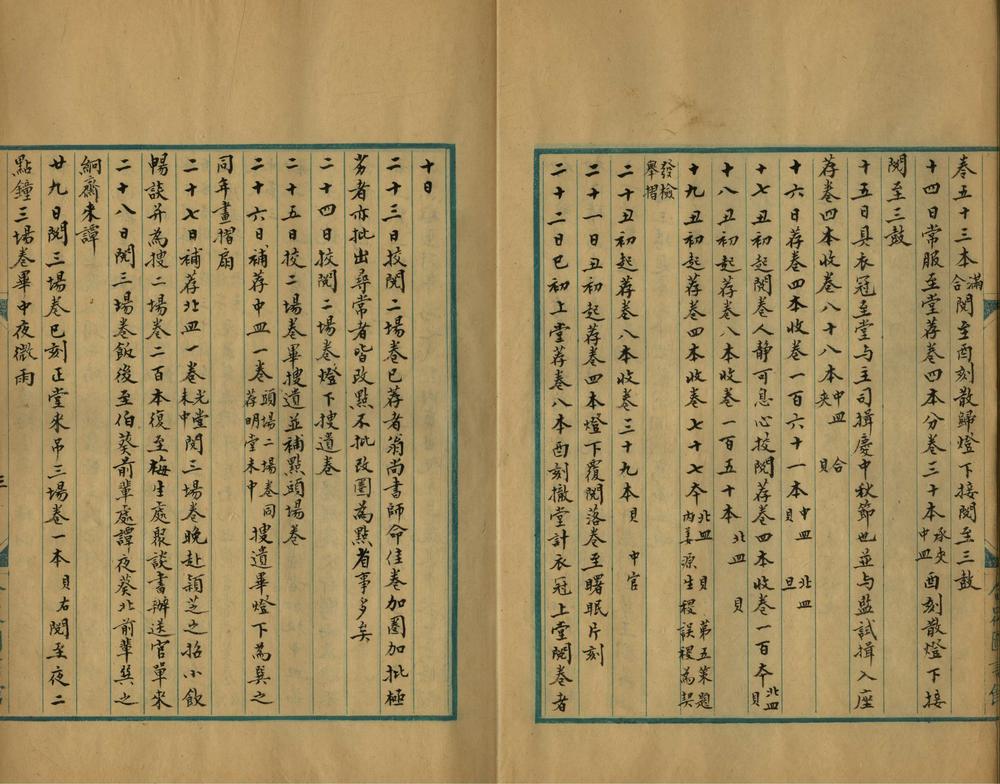 卷五十三本滿合閱至酉刻散歸燈下接閱至三鼓
十四日常服至堂荐卷四本分卷三十本承夾中皿酉刻散燈下接
閱至三鼓
十五日具衣冠至堂与主司揖慶中秋節也並与監試揖入座
荐卷四本收卷八十八本夾中皿貝合
十六日荐卷四本收卷一百六十一本中皿貝北皿旦
十七丑初起閱卷人静可息心校閱荐卷四本收卷一百本北皿貝
十八丑初起荐卷八本收卷一百五十本北皿貝
十九丑初起荐卷四本收卷七十七本北皿貝第五策題內姜源生稷誤稷為契
發檢舉摺
二十丑初起荐卷八本收卷三十九本貝中官
二十一日丑初起荐卷四本燈下覆閱落卷至曙眠片刻
二十二日巳初上堂荐卷八本酉刻撤堂計衣冠上堂閱卷者
十日
二十三日校閱二場卷已荐者翁尚書師命佳卷加圈加批極
劣者亦批出尋常者皆改點不批改圈為點省事多矣
二十四日校閱二場卷燈下搜遺卷
二十五日校二場卷畢搜遺並補點頭場卷
二十六日補荐中皿一卷頭場二場卷同荐明堂未中搜遺畢燈下為巽之
同年畫摺扇
二十七日補荐北皿一卷光堂未中閱三場卷晚赴穎芝之招小飲
暢談并為搜二場卷二百本復至梅生處聚談書辦送官單來
二十八日閱三場卷飯後至伯葵前輩處譚夜葵北前輩巽之
絅齋來譚
廿九日閱三場卷巳刻正堂來吊三場卷一本貝右閱至夜二
點鐘三場卷畢中夜微雨